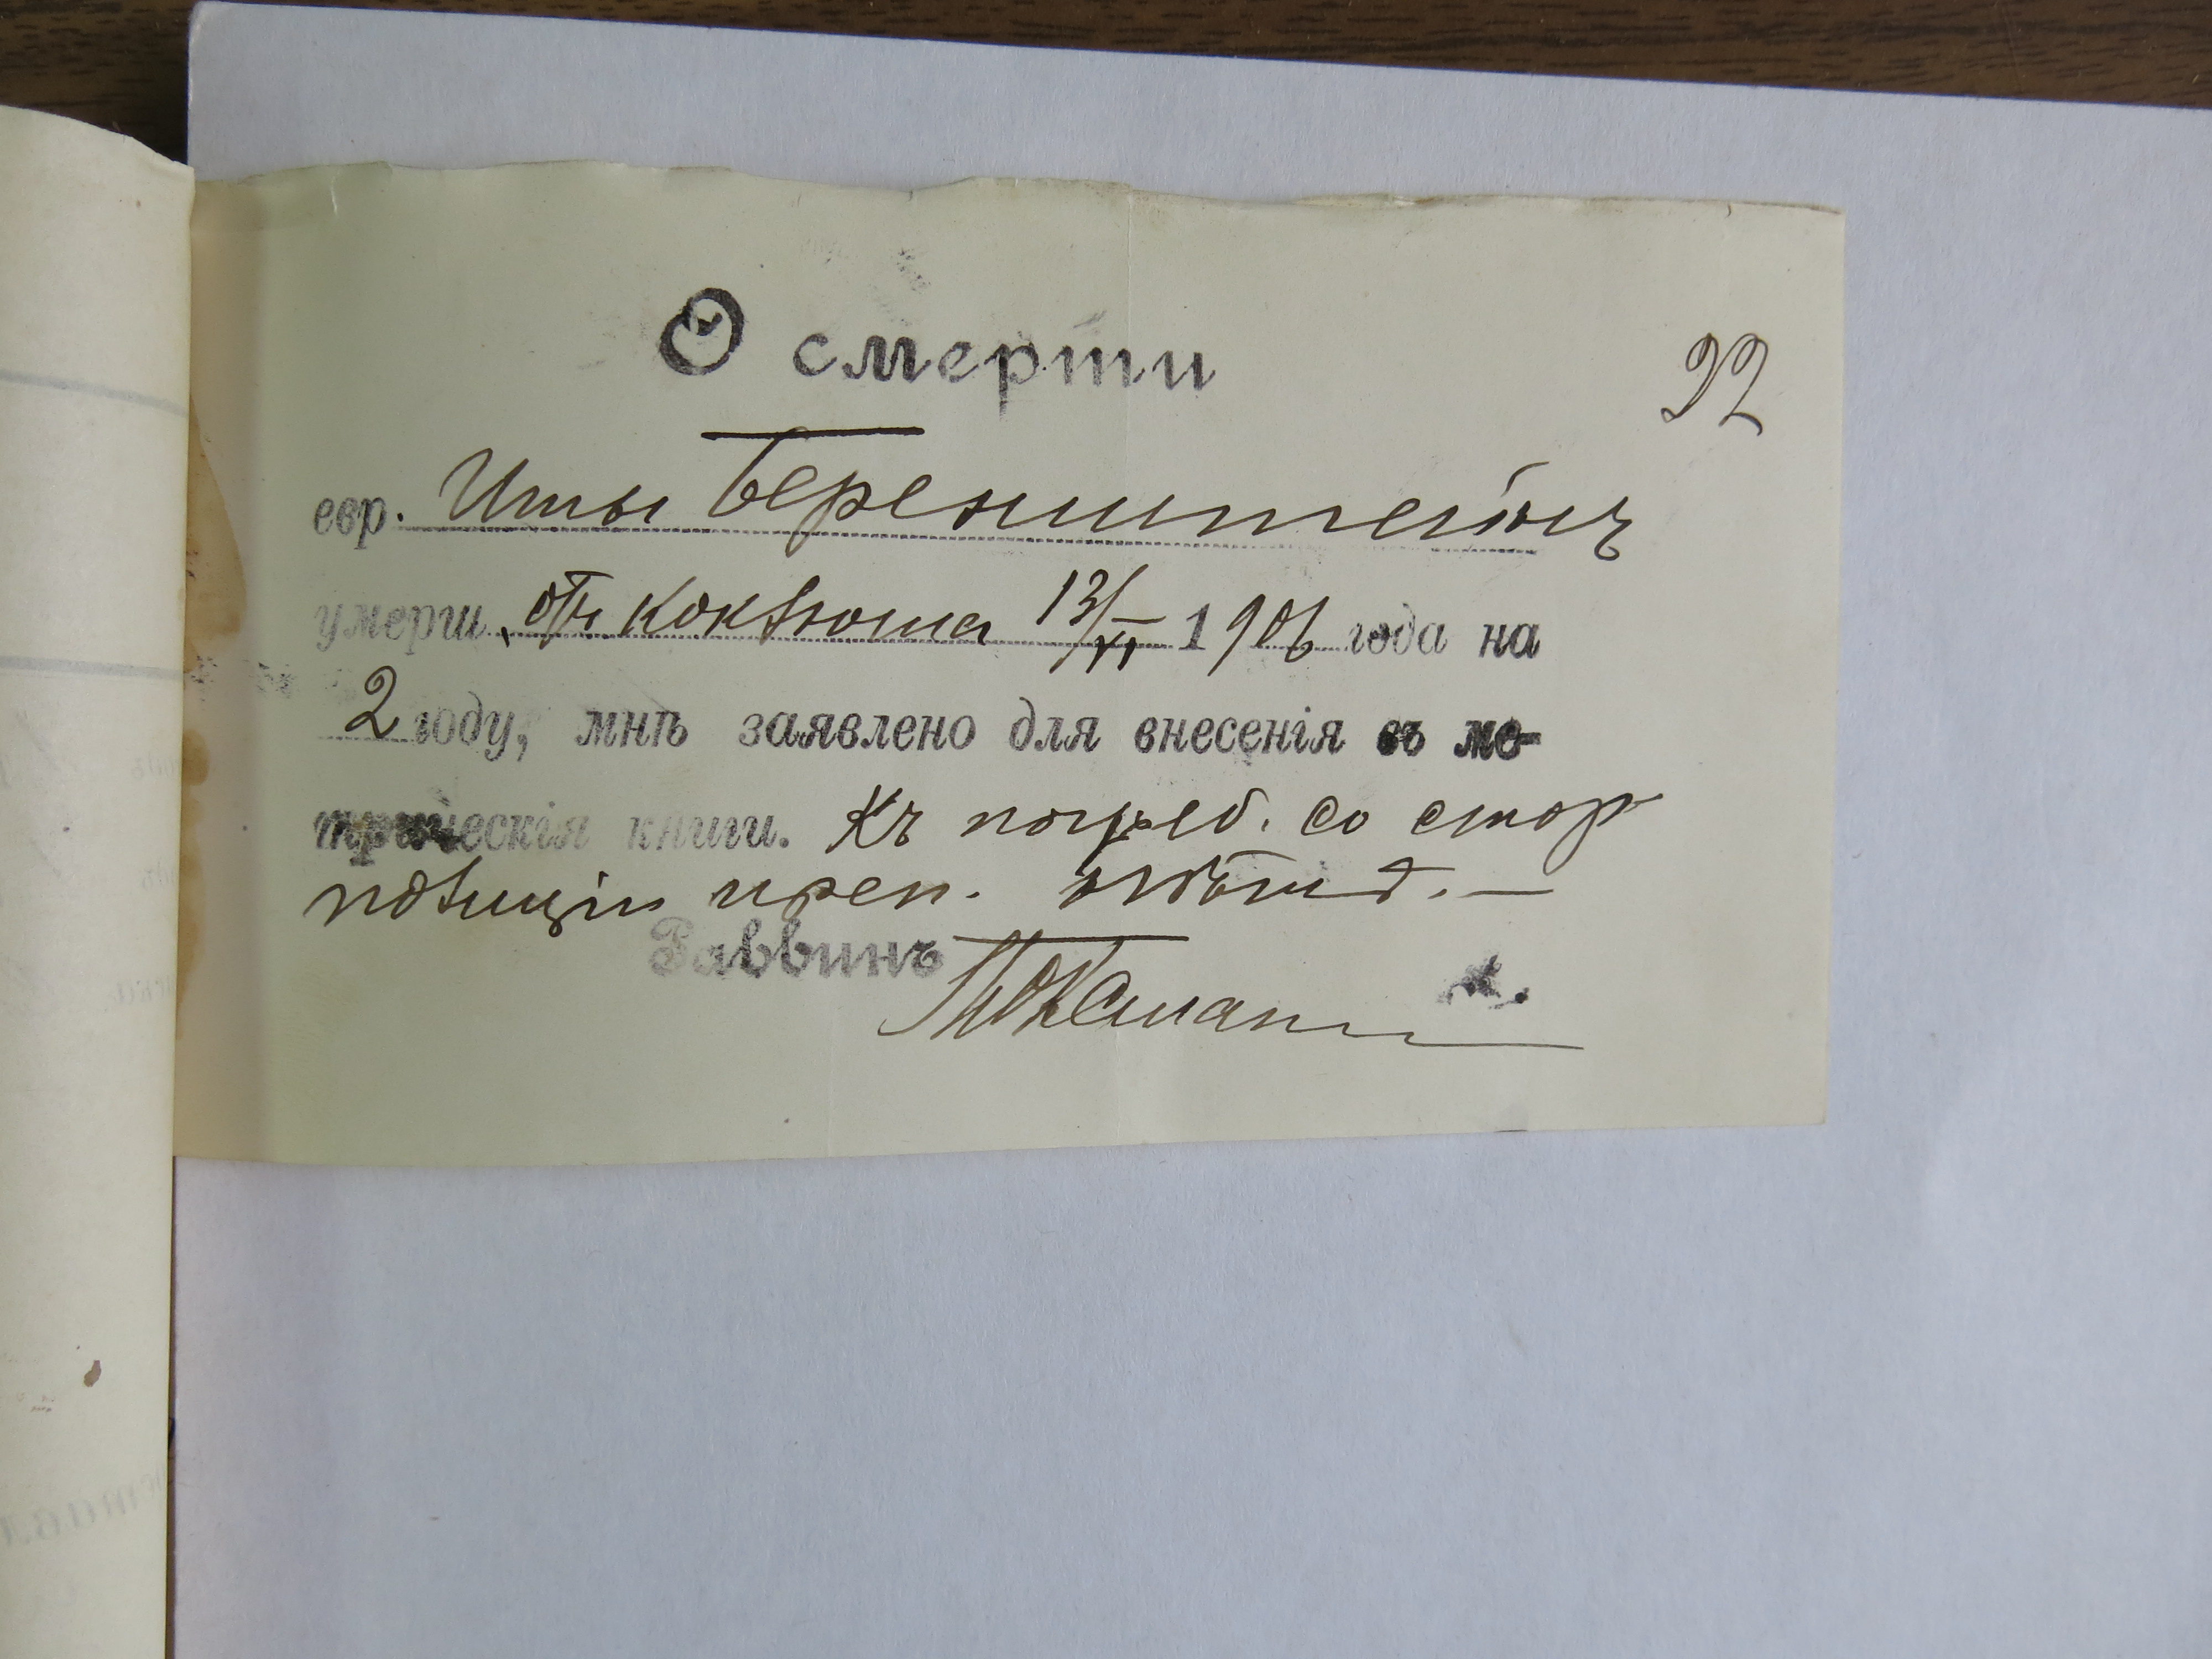 О смерти
92
евр. Иты Беренштейнъ
умерш. отъ коклюша 13/VI 1906 года на
2 году, мнѣ заявлено для внесенія въ ме-
трическія книги. Къ погреб. со стор
полиціи преп.
Раввинъ